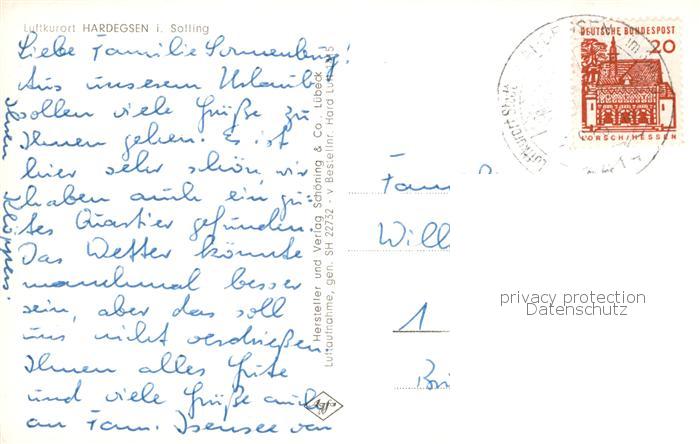 Luftkurort HARDEGSEN i. Solling
Liebe Familie Sonnenburg!
Aus unserem Urlaub
sollen viele Grüße zu
Ihnen gehen. Es ist
hier sehr schön, wir
haben auch ein gu-
tes Quartier gefunden.
Das Wetter könnte
manchmal besser
sein, aber das soll
uns nicht verdrießen.
Ihnen alles Gute
und viele Grüße auch
an Fam. Isensee von
Ihren Klöppers.
Hersteller und Verlag Schöning & Co., Lübeck
Luftaufnahme, gen. SH 22732 - v Bestellnr. Hard Lu
DEUTSCHE BUNDESPOST
20
LORSCH/HESSEN
Fam
Will
1
Bri
privacy protection
Datenschutz